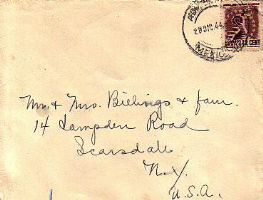 Mr. & Mrs. Billings & fam.
14 Lampden Road
Scarsdale
N.Y.
U.S.A.
MEXICO